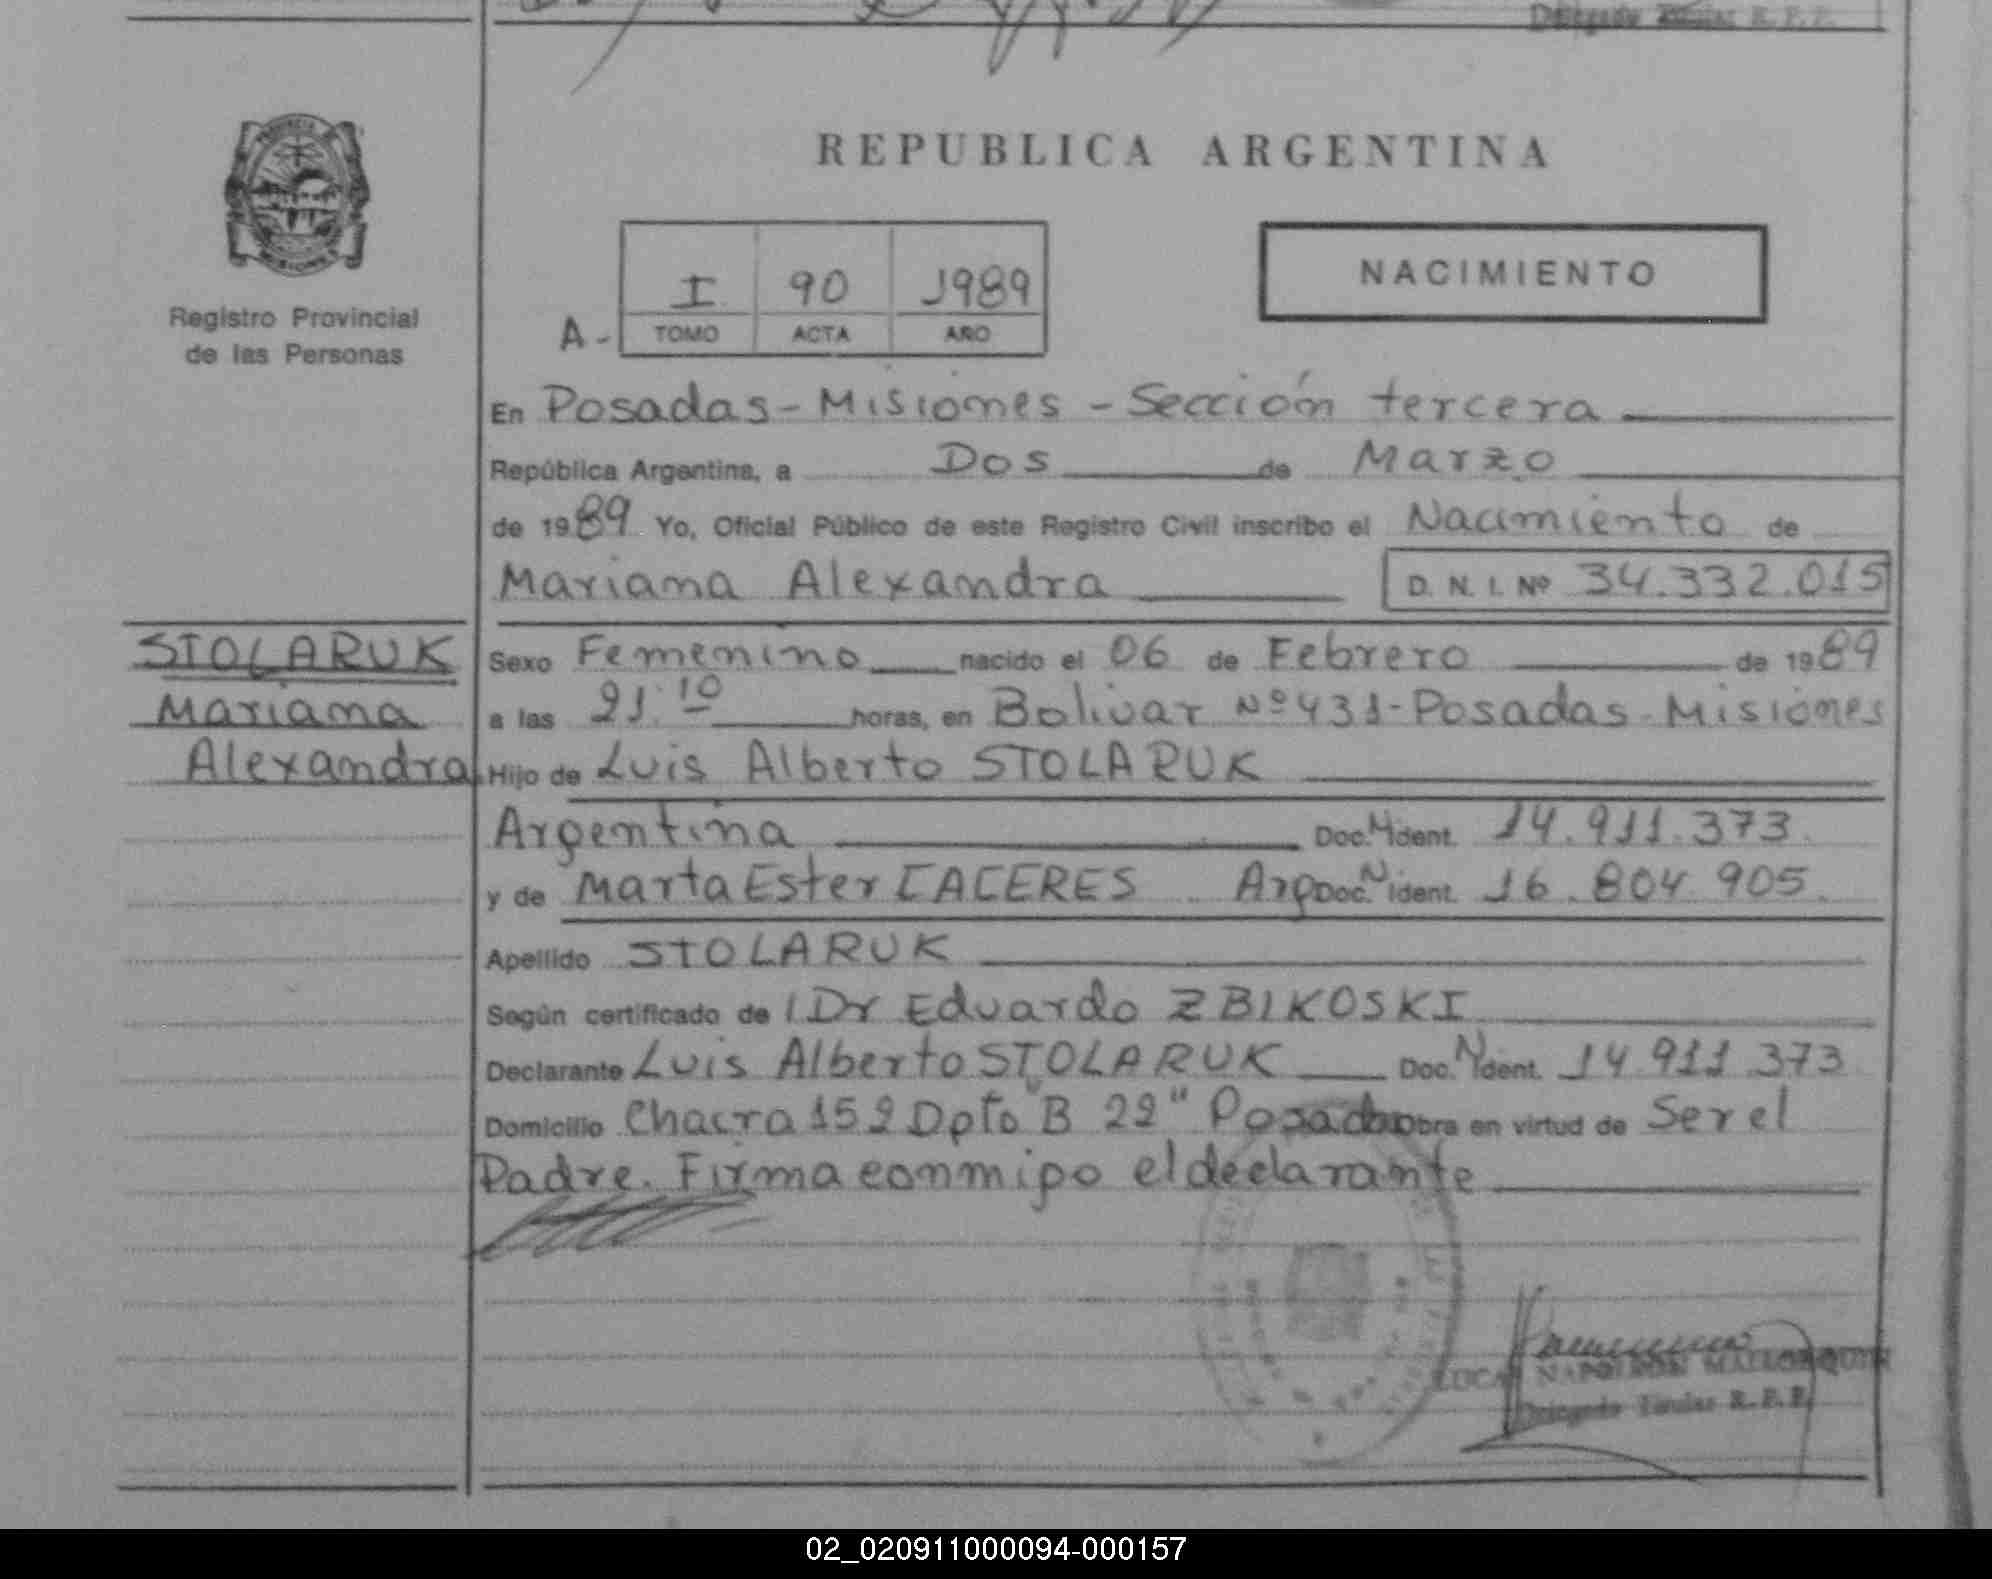 Delegado Titular R. P. P.
REPUBLICA ARGENTINA
Registro Provincial
de las Personas
A- I 90 1989
TOMO ACTA AÑO
NACIMIENTO
En Posadas - Misiones - Sección tercera
República Argentina, a Dos de Marzo
de 1989 Yo, Oficial Público de este Registro Civil inscribo el Nacimiento de
Mariana Alexandra D. N. I. Nº 34.332.015
STOLARUK
Mariana
Alexandra
Sexo Femenino nacido el 06 de Febrero de 1989
a las 21:10 horas, en Bolivar Nº 431 - Posadas - Misiones
Hijo de Luis Alberto STOLARUK
Argentina Doc. N ident. 14.911.373
y de Marta Ester CACERES Arg Doc. N ident. 16.804.905
Apellido STOLARUK
Según certificado de Dr Eduardo ZBIKOSKI
Declarante Luis Alberto STOLARUK Doc. N ident. 14.911.373
Domicilio Chacra 152 Dpto "B 22" Posadas obra en virtud de Ser el
Padre. Firma conmigo el declarante
NAPOLEON MALLORQUIN
Delegado Titular R. P. P.
02_020911000094-000157